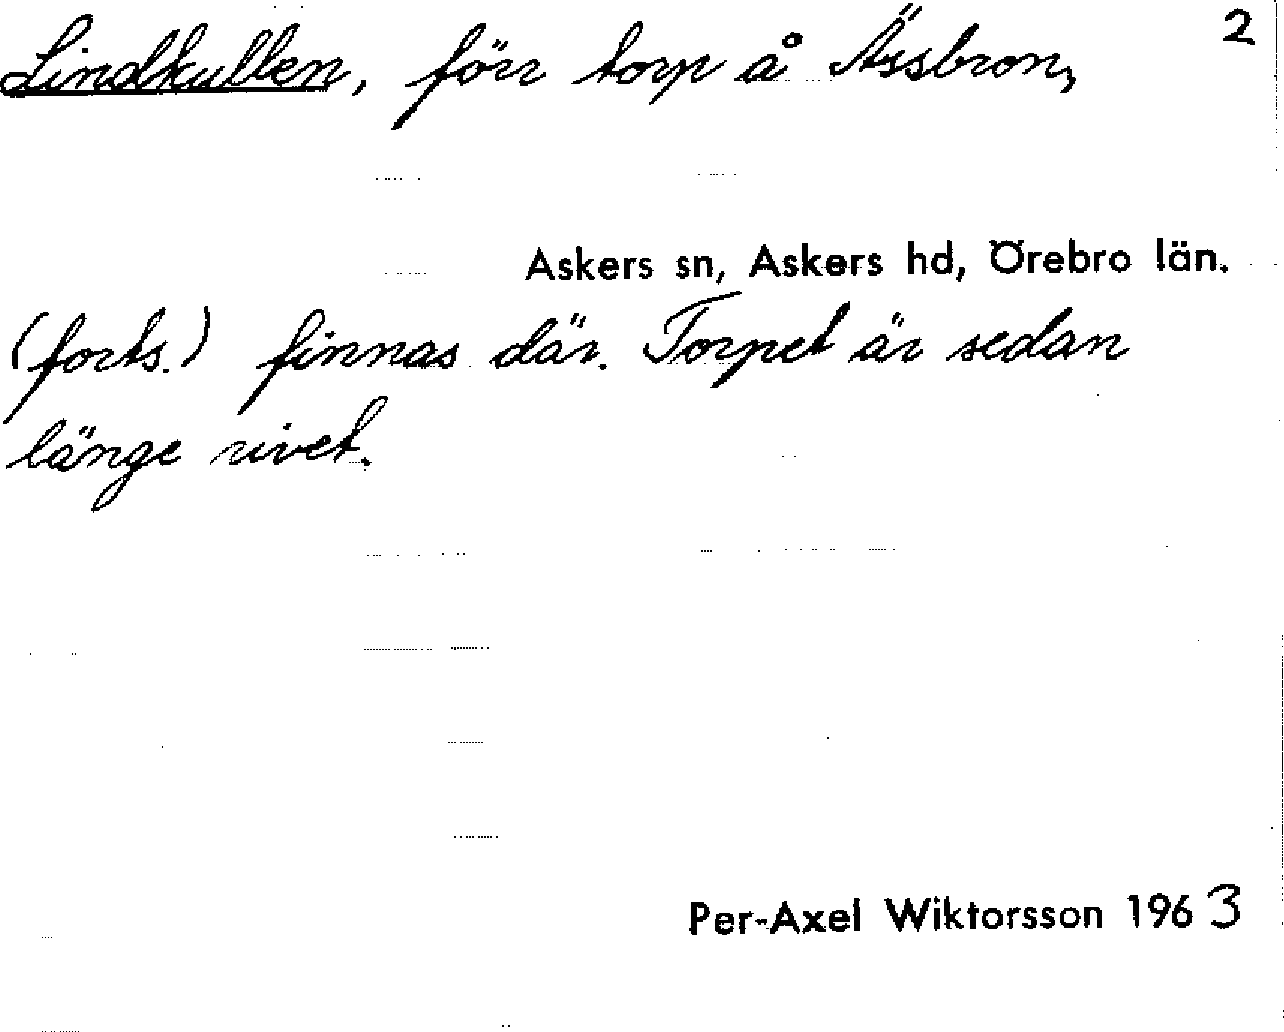 Lindkullen, förr torp å Ässbron, 2
Askers sn, Askers hd, Örebro län.
(forts.) finnas där. Torpet är sedan
länge rivet.
Per-Axel Wiktorsson 1963